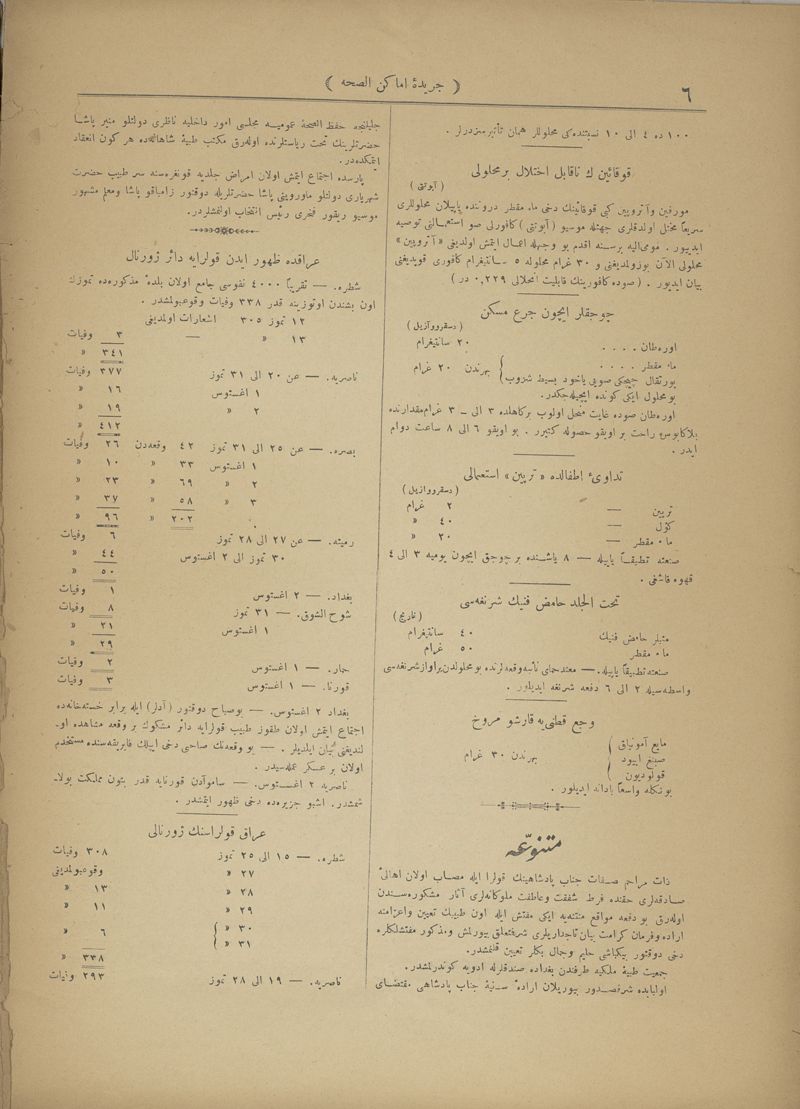 ٦
( جريدهٔ اماكن الصحه )
١٠٠ ده ٤ الى ١٠ نسبتنده‌كى محلوللر همان تأثيرسزدرلر .
قوقائين ك ناقابل اختلال بر محلولى
( آبوتى )
مورفين و آتروپين كبى قوقائينك دخى ماء مقطر درونده ياپيلان محلوللرى
سريعاً مختل اولدقلرى جهتله موسيو ( آبوتى ) كافورلى صو استعمالنى توصيه
ايدييور . مومى‌اليه برسنه اقدم بو وجهله اعمال ايتمش اولديغى « آتروپين »
محلولى الآن بوزولمديغنى و ٣٠ غرام محلوله ٥ سانتيغرام كافورى قويديغنى
بيان ايديور . ( صوده كافورينك قابليت انحلالى ٠,٢٢٩ در )
چوجقلر ايچون جرع مسكن
( دسقروآزيل )
اوره‌طان . . . . ٢٠ سانتيغرام
ماء مقطر . . . .
پورتقال چيچكى صويى ياخود بسيط شروب } بهرندن ٢٠ غرام
بو محلول ايكى كونده ايچيله‌جكدر .
اوره‌طان صوده غايت منحل اولوب بركاهلده ٣ الى - ٣ غرام مقدارنده
بلاكابوس راحت بر اويقو حصوله كتيرر . بو اويقو ٦ الى ٨ ساعت دوام
ايدر .
تداوئ اطفالده « ترپين » استعمالى
( دسقروآزيل )
ترپين — ٢ غرام
كؤل — ٤٠ »
ماء مقطر — ٢٠ »
صنعته تطبيقاً ياپيله — ٨ ياشنده بر چوجق ايچون يوميه ٣ الى ٤
قهوه قاشغى .
تحت الجلد حامض فنيك شرنغه‌سى
( غاريچ )
متبلر حامض فنيك ٤٠ سانتيغرام
ماء مقطر ٥٠ غرام
صنعته تطبيقاً ياپيله. — معند حماى نائبه وقعه‌لرنده بو محلولدن براواز شرنغه‌سى
واسطه‌سيله ٢ الى ٦ دفعه شرنغه ايديلور .
وجع قطنى‌يه قارشو مروخ
مايع آمونياق
صبغ اييود } بهرندن ٣٠ غرام
قولوديون
بونكله واسعاً بادانه ايديلور .
متنوعه
ذات مراحم صفات جناب پادشاهينك قولرا ايله مصاب اولان اهالئ
صادقه‌لرى حقنده فرط شفقت و عاطفت ملوكانه‌لرى آثار مشكوره‌سندن
اوله‌رق بو دفعه مواقع منتنه‌يه ايكى مفتش ايله اون طبيبك تعيين واعزامنه
اراده و فرمان كرامت بيان تاجداريلرى شرفتعلق بيورلمش و مذكور مفتشلكلره
دخى دوقتور بيكباشى حليم وجمال بكلر تعيين قلنمشدر.
جمعيت طبيهٔ ملكيه طرفندن بغداده صندقلرله ادويه كوندرلمشدر.
اوليابده شرفصدور بيوريلان ارادهٔ سنيهٔ جناب پادشاهى مقتضاى
جليلنجه حفظ الصحهٔ عموميه مجلسى امور داخليه ناظرى دولتلو منير پاشا
حضرتلرينك تحت رياستلرنده اوله‌رق مكتب طبيهٔ شاهانه‌ده هر كون انعقاد
اتمكده‌در.
پارسده اجتماع ايتمش اولان امراض جلديه قونغره‌سنه سر طبيب حضرت
شهريارى دولتلو ماورويني پاشا حضرتلريله دوقتور زامباقو پاشا ومعلم مشهور
موسيو ريقور فخرى رئيس انتخاب اولنمشلردر.
عراقده ظهور ايدن قولرايه دائر ژورنال
شطره. — تقريباً ٤٠٠٠ نفوسى جامع اولان بلدهٔ مذكوره‌ده تموزك
اون بشندن اوتوزينه قدر ٣٣٨ وفيات وقوعبولمشدر .
١٢ تموز ٣٠٥ اشعارات اولمديغى
١٣ » — ٣ وفيات
٣٤١ »
ناصريه. — عن ٢٠ الى ٣١ تموز ٣٧٧ وفيات
١ اغستوس ١٦ »
٢ » ١٩ »
٤١٢ »
بصره. — عن ٢٥ الى ٣١ تموز ٤٢ وقعه‌دن ٢٦ وفيات
١ اغستوس ٣٣ » ١٠ »
٢ » ٦٩ » ٢٣ »
٣ » ٥٨ » ٣٧ »
٢٠٢ » ٩٦ »
رميثه. — عن ٢٧ الى ٢٨ تموز ٦ وفيات
٣٠ تموز الى ٢ اغستوس ٤٤ »
٥٠ »
بغداد. — ٢ اغستوس ١ وفيات
شوح الشوق. — ٣١ تموز ٨ وفيات
١ اغستوس ٢١ »
٢٩ »
حمار. — ١ اغستوس ٢ وفيات
قورنا. — ١ اغستوس ٣ وفيات
بغداد ٢ اغستوس. — بوصباح دوقتور ( آدلر ) ايله برابر خسته‌خانه‌ده
اجتماع ايتمش اولان طقوز طبيب قولرايه دائر مشكوك بر وقعه مشاهده او-
لنديغنى بيان ايلديلر . — بو وقعه‌نك صاحبى دخى ايپلك فابريقه‌سنده مستخدم
اولان بر عسكر عمله‌سيدر .
ناصريه ٢ اغستوس. — سماوآدن قورنايه قدر بتون مملكت بولا-
شمشدر. اشبو جزيره‌ده دخى ظهور ايتمشدر .
عراق قولراسنك ژورنالى
شطره. — ١٥ الى ٢٥ تموز ٣٠٨ وفيات
٢٧ » وقوعبولمديغى
٢٨ » ١٣ »
٢٩ » ١١ »
٣٠ »
٣١ » } ٦ »
٣٣٨ »
ناصريه. — ١٩ الى ٢٨ تموز ٢٩٣ وفيات